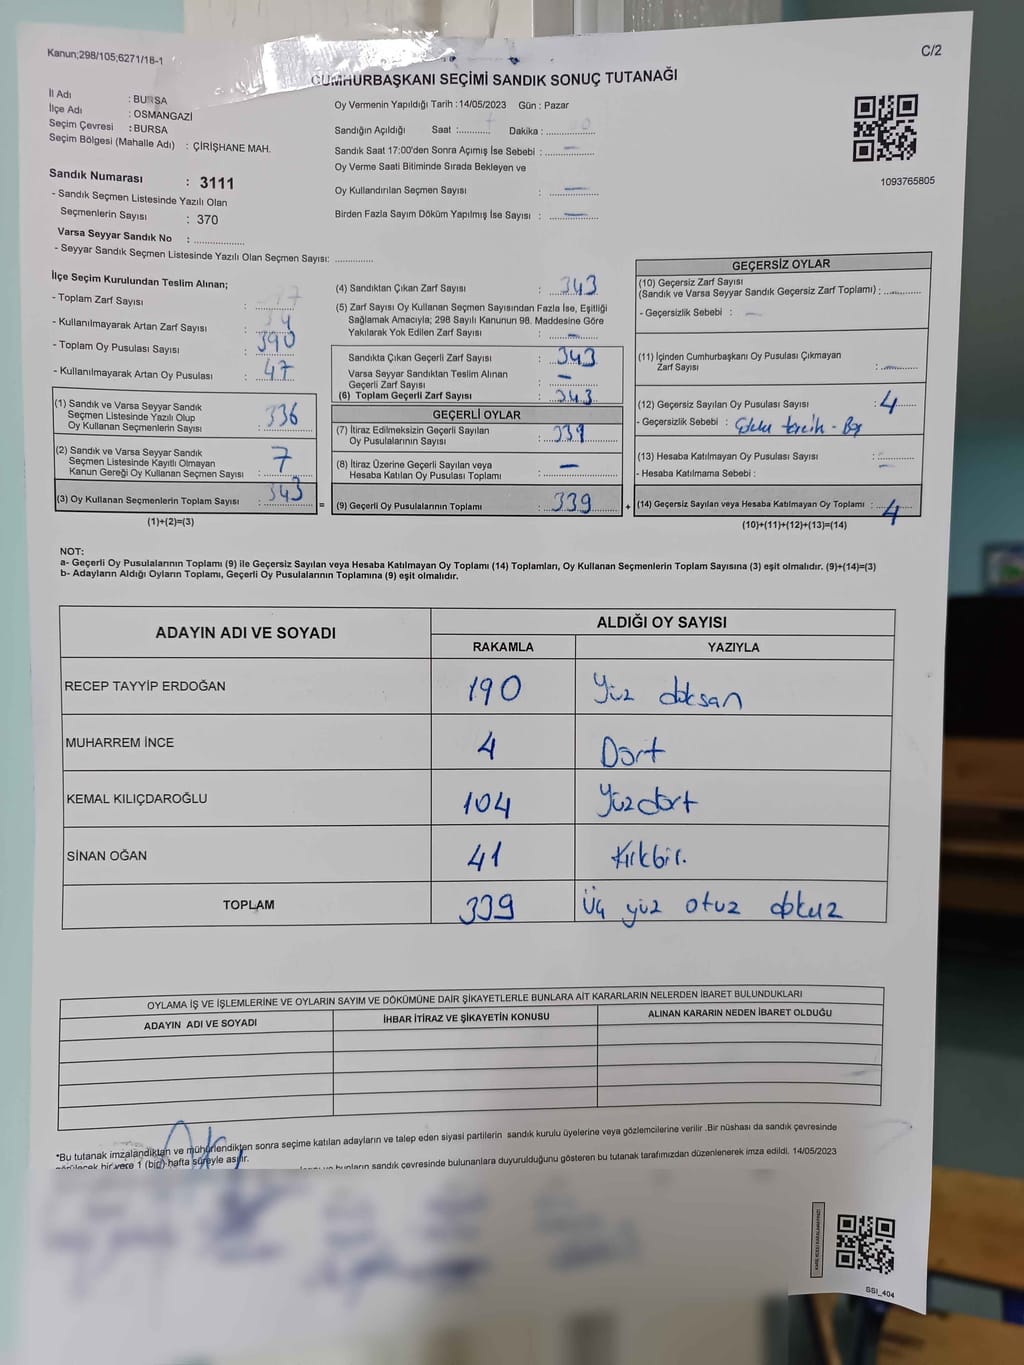 Kanun;298/105;6271/18-1
C/2
CUMHURBAŞKANI SEÇİMİ SANDIK SONUÇ TUTANAĞI
İl Adı : BURSA
İlçe Adı : OSMANGAZİ
Seçim Çevresi : BURSA
Seçim Bölgesi (Mahalle Adı) : ÇİRİŞHANE MAH.
Sandık Numarası : 3111
- Sandık Seçmen Listesinde Yazılı Olan
Seçmenlerin Sayısı : 370
Varsa Seyyar Sandık No : ..................
- Seyyar Sandık Seçmen Listesinde Yazılı Olan Seçmen Sayısı: .............
Oy Vermenin Yapıldığı Tarih : 14/05/2023 Gün : Pazar
Sandığın Açıldığı Saat :.......... Dakika : ..............
Sandık Saat 17:00'den Sonra Açımış İse Sebebi : –
Oy Verme Saati Bitiminde Sırada Bekleyen ve
Oy Kullandırılan Seçmen Sayısı : –
Birden Fazla Sayım Döküm Yapılmış İse Sayısı : –
1093765805
İlçe Seçim Kurulundan Teslim Alınan;
- Toplam Zarf Sayısı :
- Kullanılmayarak Artan Zarf Sayısı :
- Toplam Oy Pusulası Sayısı : 390
- Kullanılmayarak Artan Oy Pusulası : 47
(1) Sandık ve Varsa Seyyar Sandık
Seçmen Listesinde Yazılı Olup
Oy Kullanan Seçmenlerin Sayısı : 336
(2) Sandık ve Varsa Seyyar Sandık
Seçmen Listesinde Kayıtlı Olmayan
Kanun Gereği Oy Kullanan Seçmen Sayısı : 7
(3) Oy Kullanan Seçmenlerin Toplam Sayısı : 343
(1)+(2)=(3)
=
(4) Sandıktan Çıkan Zarf Sayısı : 343
(5) Zarf Sayısı Oy Kullanan Seçmen Sayısından Fazla İse, Eşitliği
Sağlamak Amacıyla; 298 Sayılı Kanunun 98. Maddesine Göre
Yakılarak Yok Edilen Zarf Sayısı : –
Sandıkta Çıkan Geçerli Zarf Sayısı : 343
Varsa Seyyar Sandıktan Teslim Alınan
Geçerli Zarf Sayısı : –
(6) Toplam Geçerli Zarf Sayısı : 343
GEÇERLİ OYLAR
(7) İtiraz Edilmeksizin Geçerli Sayılan
Oy Pusulalarının Sayısı : 339
(8) İtiraz Üzerine Geçerli Sayılan veya
Hesaba Katılan Oy Pusulası Toplamı : –
(9) Geçerli Oy Pusulalarının Toplamı : 339
+
GEÇERSİZ OYLAR
(10) Geçersiz Zarf Sayısı
(Sandık ve Varsa Seyyar Sandık Geçersiz Zarf Toplamı) : ............
- Geçersizlik Sebebi : –
(11) İçinden Cumhurbaşkanı Oy Pusulası Çıkmayan
Zarf Sayısı : ............
(12) Geçersiz Sayılan Oy Pusulası Sayısı : 4
- Geçersizlik Sebebi : tercih - Boş
(13) Hesaba Katılmayan Oy Pusulası Sayısı : ............
- Hesaba Katılmama Sebebi :
(14) Geçersiz Sayılan veya Hesaba Katılmayan Oy Toplamı : 4
(10)+(11)+(12)+(13)=(14)
NOT:
a- Geçerli Oy Pusulalarının Toplamı (9) ile Geçersiz Sayılan veya Hesaba Katılmayan Oy Toplamı (14) Toplamları, Oy Kullanan Seçmenlerin Toplam Sayısına (3) eşit olmalıdır. (9)+(14)=(3)
b- Adayların Aldığı Oyların Toplamı, Geçerli Oy Pusulalarının Toplamına (9) eşit olmalıdır.
ADAYIN ADI VE SOYADI ALDIĞI OY SAYISI
RAKAMLA YAZIYLA
RECEP TAYYİP ERDOĞAN 190 Yüz doksan
MUHARREM İNCE 4 Dört
KEMAL KILIÇDAROĞLU 104 Yüzdört
SİNAN OĞAN 41 Kırkbir.
TOPLAM 339 Üç yüz otuz dokuz
OYLAMA İŞ VE İŞLEMLERİNE VE OYLARIN SAYIM VE DÖKÜMÜNE DAİR ŞİKAYETLERLE BUNLARA AİT KARARLARIN NELERDEN İBARET BULUNDUKLARI
ADAYIN ADI VE SOYADI İHBAR İTİRAZ VE ŞİKAYETİN KONUSU ALINAN KARARIN NEDEN İBARET OLDUĞU
*Bu tutanak imzalandıktan ve mühürlendikten sonra seçime katılan adayların ve talep eden siyasi partilerin sandık kurulu üyelerine veya gözlemcilerine verilir .Bir nüshası da sandık çevresinde
görülecek bir yere 1 (bir) hafta süreyle asılır.
bunların sandık çevresinde bulunanlara duyurulduğunu gösteren bu tutanak tarafımızdan düzenlenerek imza edildi. 14/05/2023
SSİ_404